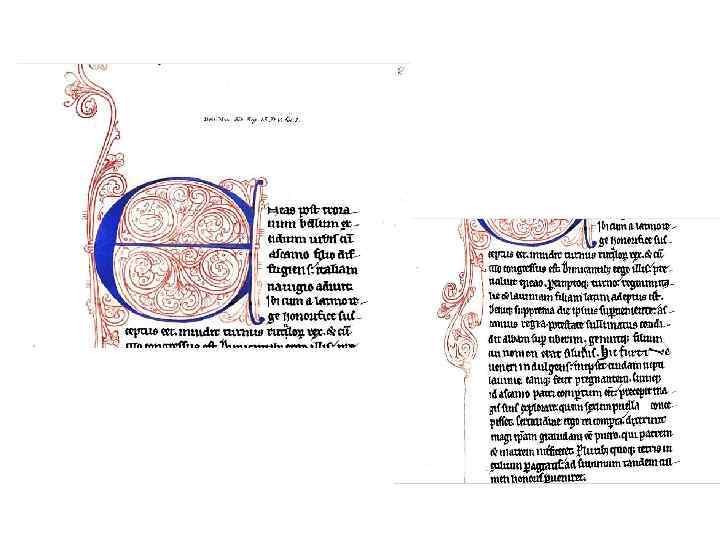 Eneas post troia-
num bellum &ex-
cidium urbis cū
ascanio filio dif-
fugiens; italiam
nauigio adiuit.
Ibi cum a latino re-
ge honorifice sus-
ceptus eēt, inuidit turnus rutilorʒ rex, & cū
illo congressus est. Dimicantibȝ ergo illis, pre-
Ibi cum a latino re-
ge honorifice sus-
ceptus eēt, inuidit turnus rutilorʒ rex, & cū
illo congressus est. Dimicantibȝ ergo illis, pre-
ualuit eneas, peremptoqȝ turno: regnum ita-
lie & lauiniam filiam latini adeptus est.
Denique suprema die ipsius superueniente: as-
canius regia potestate sullimatus condi-
dit albam sup tiberim, genuitqȝ filium
cui nomen erat siluius. Hic furtiue
ueneri indulgens: nupsit cuidam nepti
lauinie, eamqȝ fecit pregnantem. Cumqȝ
id ascanio patri compertum eēt: precepit ma-
gis suis explorare quem sexum puella conce-
pisset. Certitudine ergo rei comperta, dixerunt
magi ipsam grauidam eē puero, qui patrem
& matrem interficeret. Pluribȝ quoqȝ terris in
exilium peragratis: ad summum tandem cul-
men honoris perueniret.